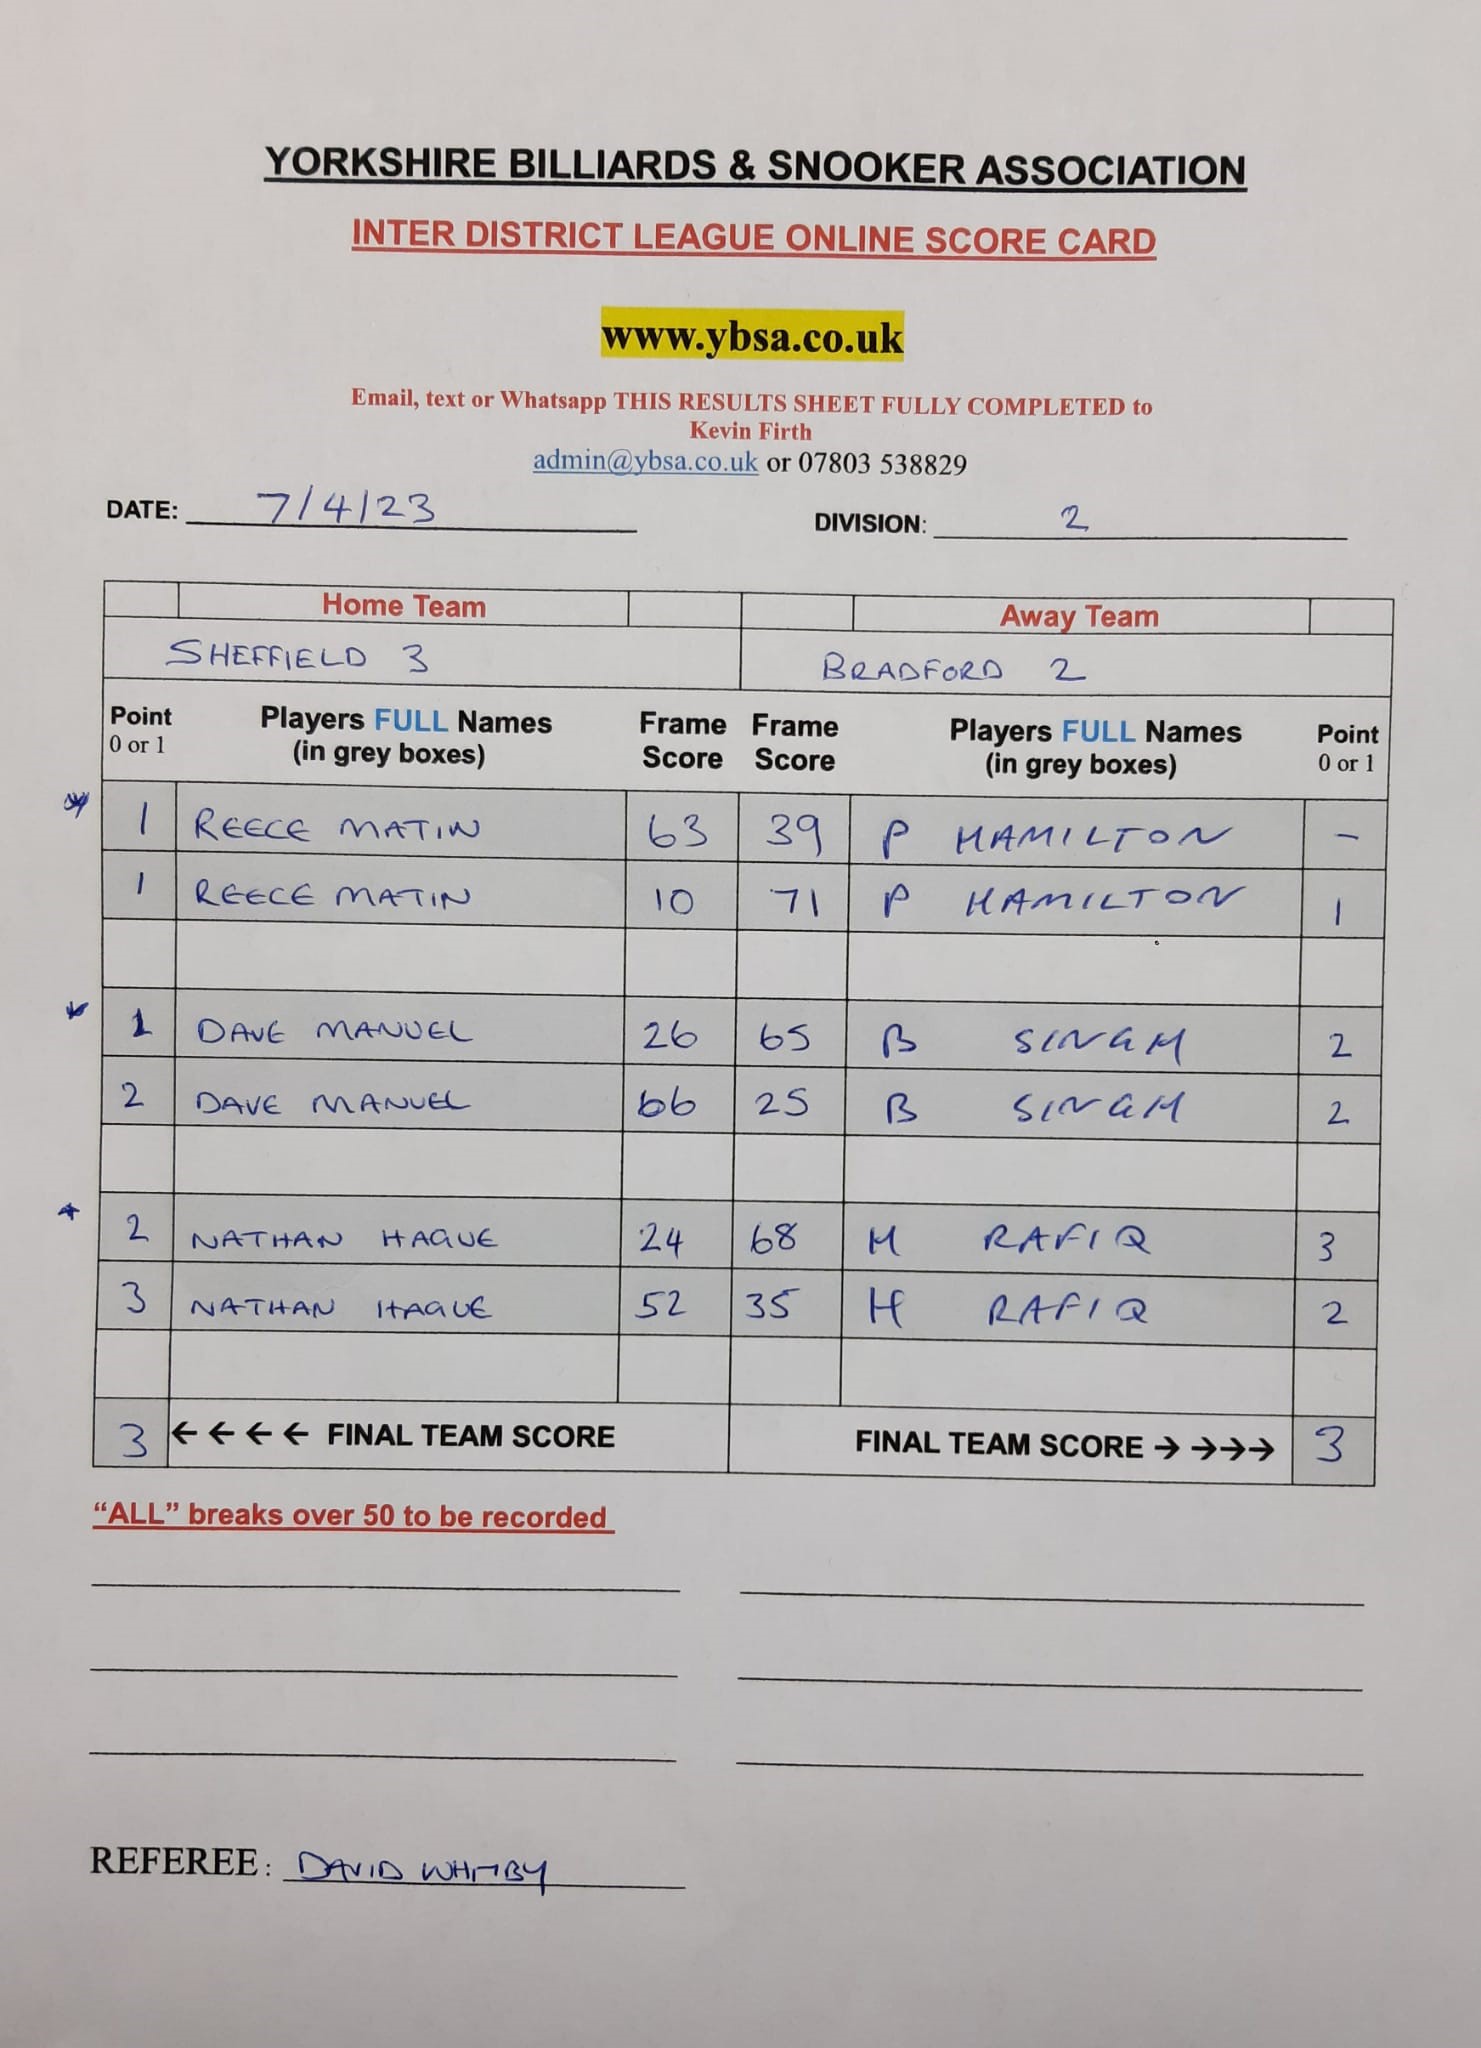 YORKSHIRE BILLIARDS & SNOOKER ASSOCIATION
INTER DISTRICT LEAGUE ONLINE SCORE CARD
www.ybsa.co.uk
Email, text or Whatsapp THIS RESULTS SHEET FULLY COMPLETED to
Kevin Firth
admin@ybsa.co.uk or 07803 538829
DATE: 7/4/23 DIVISION: 2
Home Team Away Team
SHEFFIELD 3 BRADFORD 2
Point Players FULL Names Frame Frame Players FULL Names Point
0 or 1 (in grey boxes) Score Score (in grey boxes) 0 or 1
1 REECE MATIN 63 39 P HAMILTON -
1 REECE MATIN 10 71 P HAMILTON 1
1 DAVE MANUEL 26 65 B SINGH 2
2 DAVE MANUEL 66 25 B SINGH 2
2 NATHAN HAGUE 24 68 H RAFIQ 3
3 NATHAN HAGUE 52 35 H RAFIQ 2
3 ←←←← FINAL TEAM SCORE FINAL TEAM SCORE →→→→ 3
“ALL” breaks over 50 to be recorded
REFEREE: DAVID WHITBY